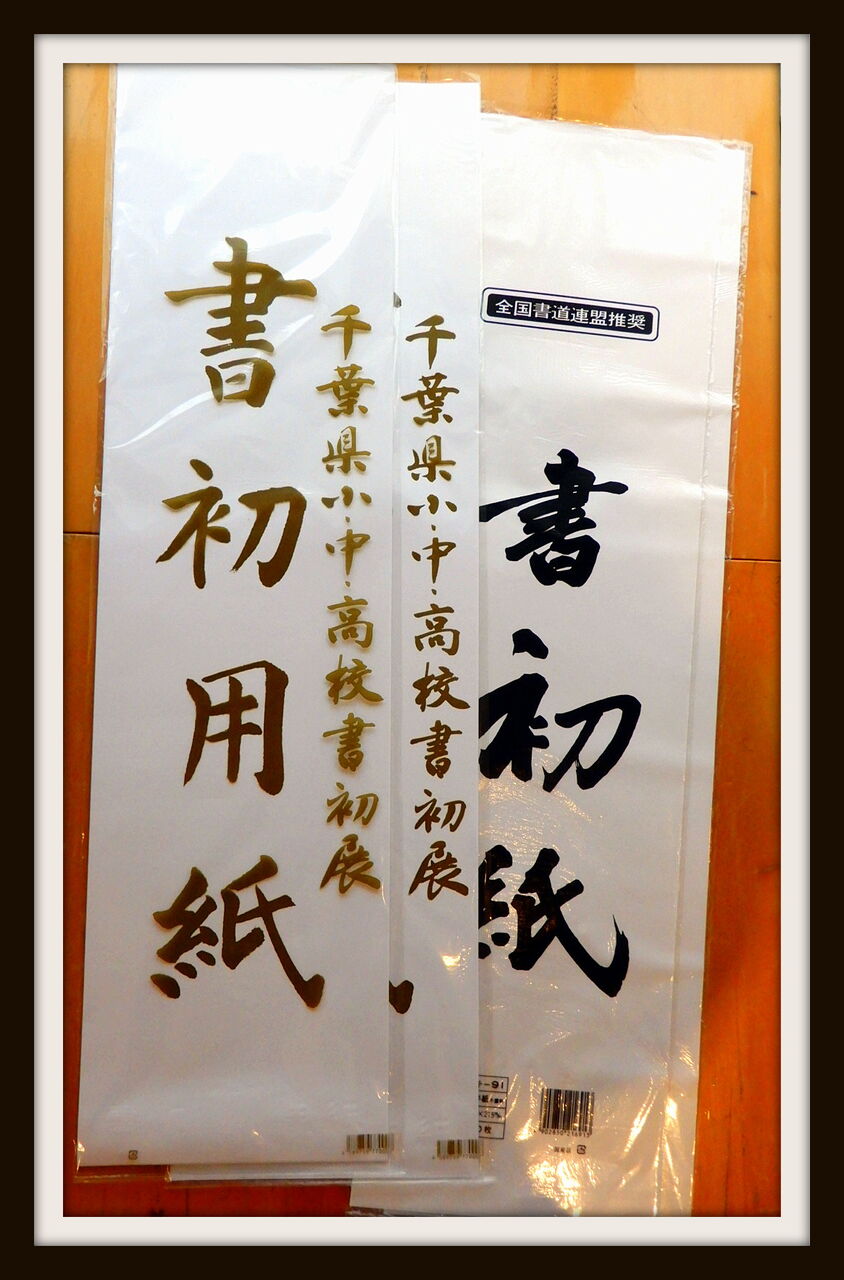 千葉県小・中・高校書初展
書初用紙
千葉県小・中・高校書初展
全国書道連盟推奨
書初紙